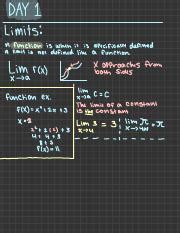 DAY 1
Limits:
A function is when it is specifically defined
a limit is not defined like a function
Lim f(x)
x→a
X approaches from
both sides
function ex.
f(x) = x² + 2x + 3
x = 2
2² + 2(2) + 3
4 + 4 + 3
8 + 3
f(x) = 11
lim C = C
x→a
The limit of a constant
is the constant
Lim 3 = 3
x→4
lim π = π